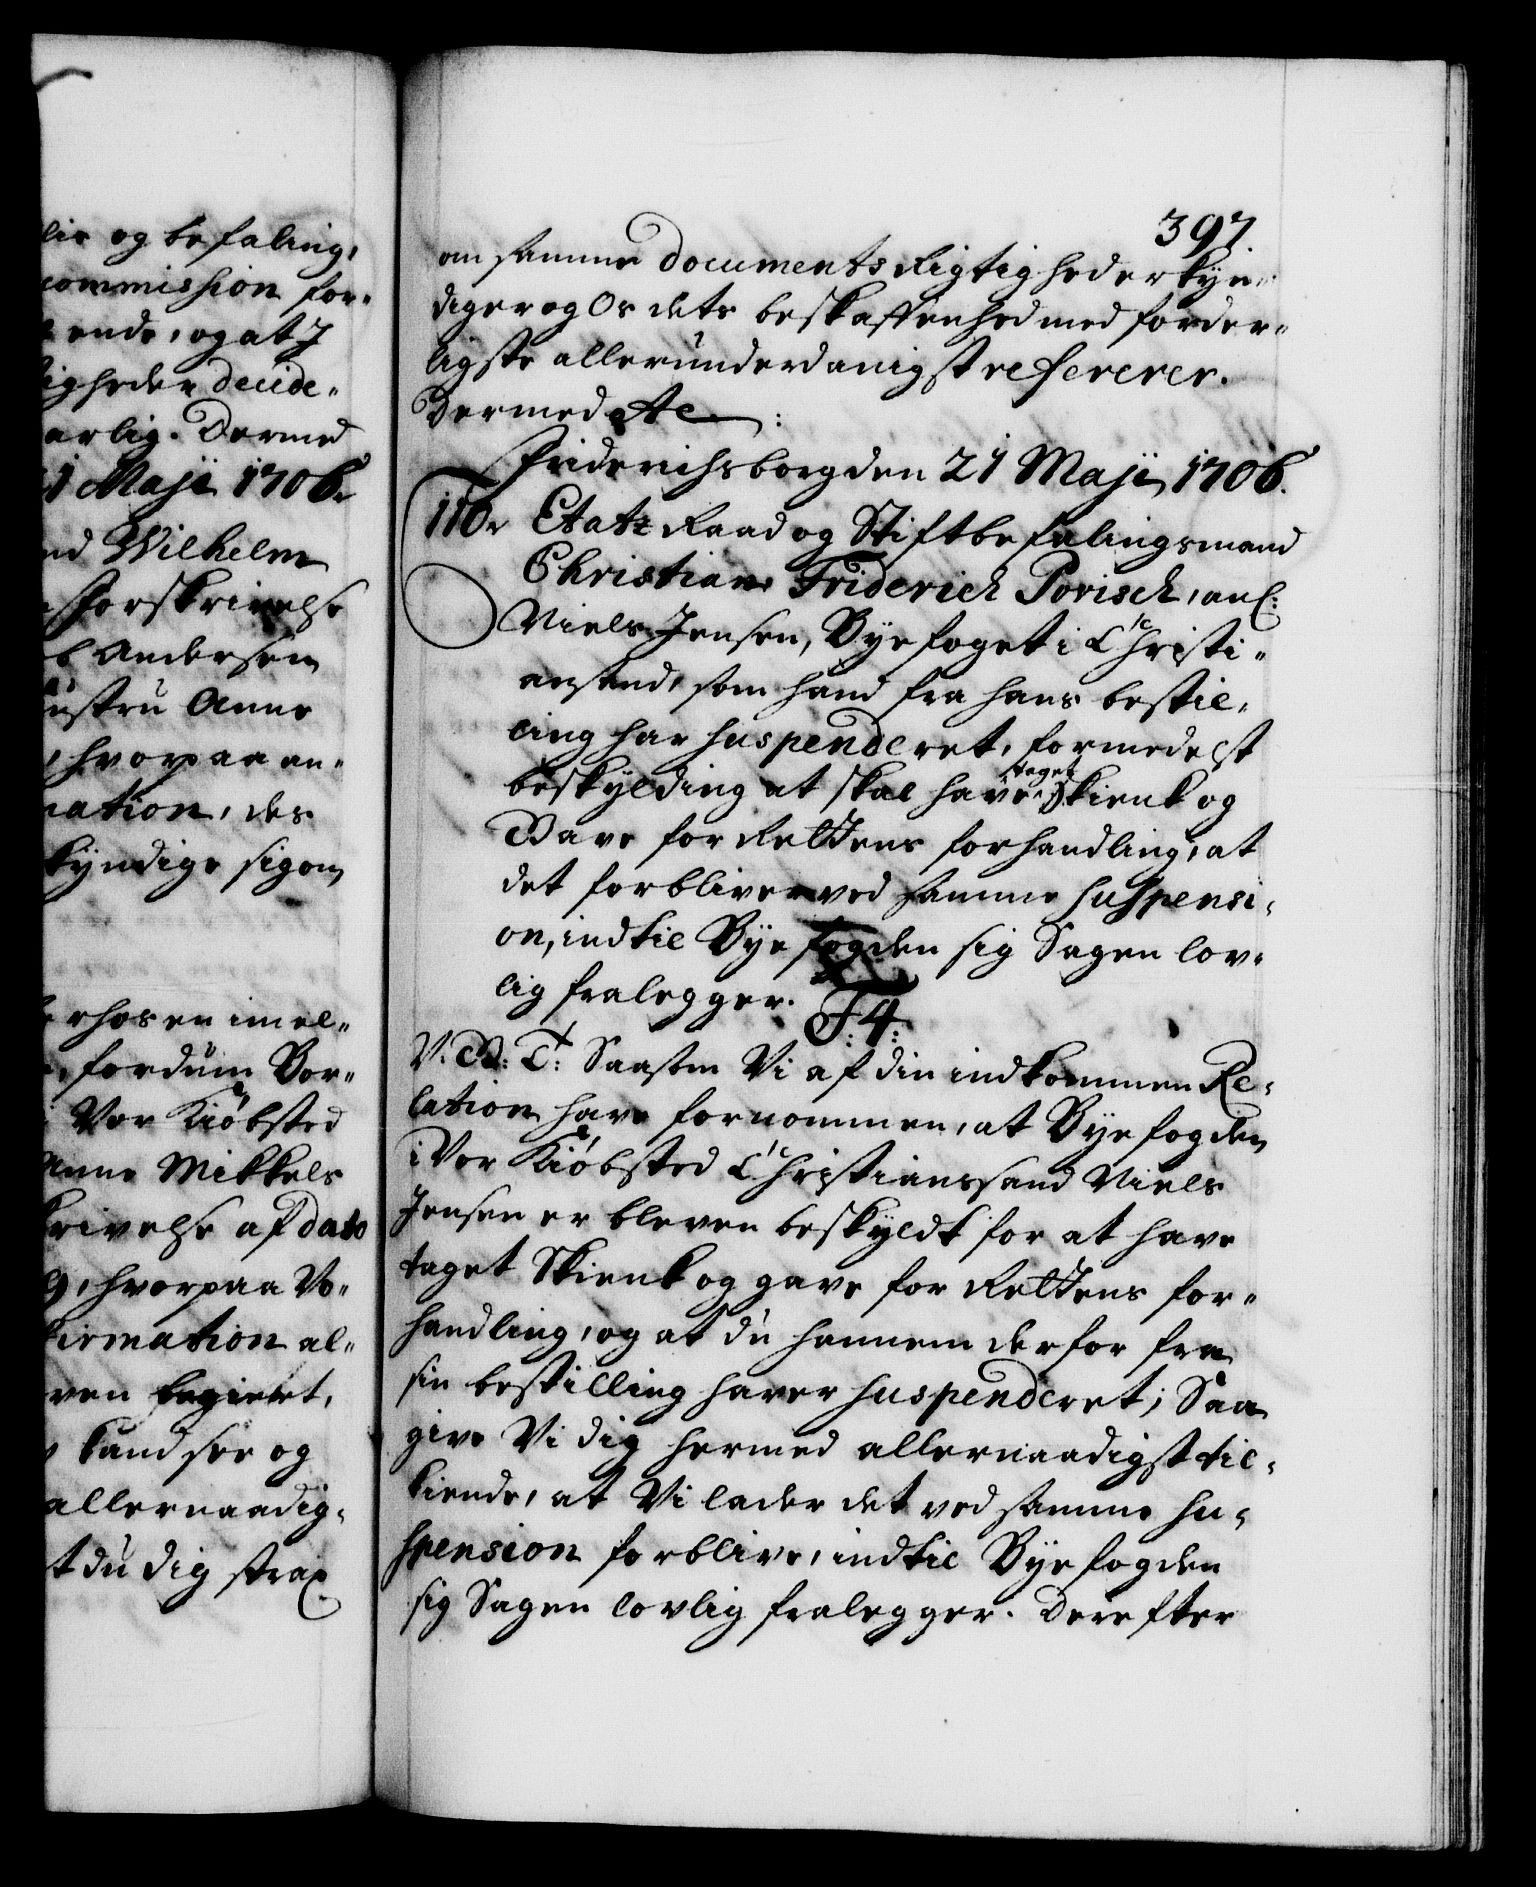 lie og befaling,
commission for-
ende, og at I
igheden decide-
arlig. Dermed
21 Maji 1706.
nd Wilhelm
forskrivelse
Andersen
ustru Anne
, hvorpaa an-
mation, des
kyndige sig om
erhos en imel-
fordum Bor-
Vor Kiøbsted
Anne Mikkels
krivelse af dato
hvorpaa Vo-
firmation al-
ven
kand see og
allernaadig-
t du dig strax
397.
om samme documents Rigtighed erkyn-
diger og Os dets beskaffenhed med forder-
ligste allerunderdanigst refererer.
Dermed etc:
Friderichsborg den 21 Maji 1706.
110. Etatz Raad og Stiftbefalingsmand
Christian Friderich Povisch, anl:
Niels Jensen, Byefoget i Christi-
ansand, som hand fra hans bestil-
ling har suspenderet, formedelst
beskylding at skal have taget Skienk og
Gave for Rettens forhandling, at
det forbliver ved samme suspensi-
on, indtil Byefogden sig Sagen lov-
lig fralegger.
F: 4:
V. G: T: Saasom Vi af din indkommen Re-
lation have fornommen, at Byefogden
i Vor Kiøbsted Christianssand Niels
Jensen er bleven beskyldt for at have
taget Skienk og gave for Rettens for-
handling, og at du hannem derfor fra
sin bestilling haver suspenderet; Saa
give Vi dig hermed allernaadigst til-
kiende, at Vi lader det ved samme su-
spension forblive, indtil Byefogden
sig Sagen lovlig fralegger. Derefter